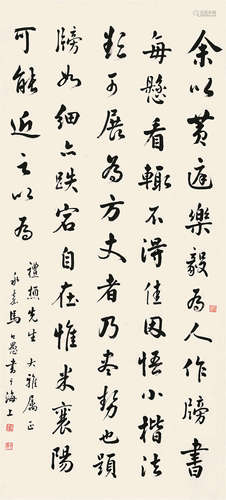 余以黃庭樂毅為人作牓書
每懸看輒不得佳因悟小楷法
欲可展為方丈者乃盡勢也題
牓如細亦跌宕自在惟米襄陽
可能近之以為
禮先生大雅屬正
永嘉馬公愚書于海上